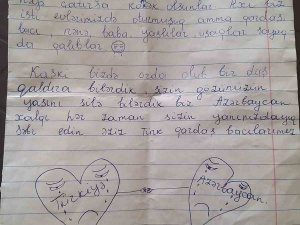 çatırsa kömək olsunlar. Axı biz
isti evlərimizdə oturmuşuq amma qardaş
bacı, nənə, baba, yaşlılar uşaqlar soyuq
da qalıblar
Kaşki bizdə orda olub bir daş
qaldıra bilərdik, sizin gözünüzün
yaşını silə bilərdik biz Azərbaycan
xalqı hər zaman sizin yanınızdayıq
səbr edin əziz Türk qardaş bacılarımız
Türkiyə
Azərbaycan